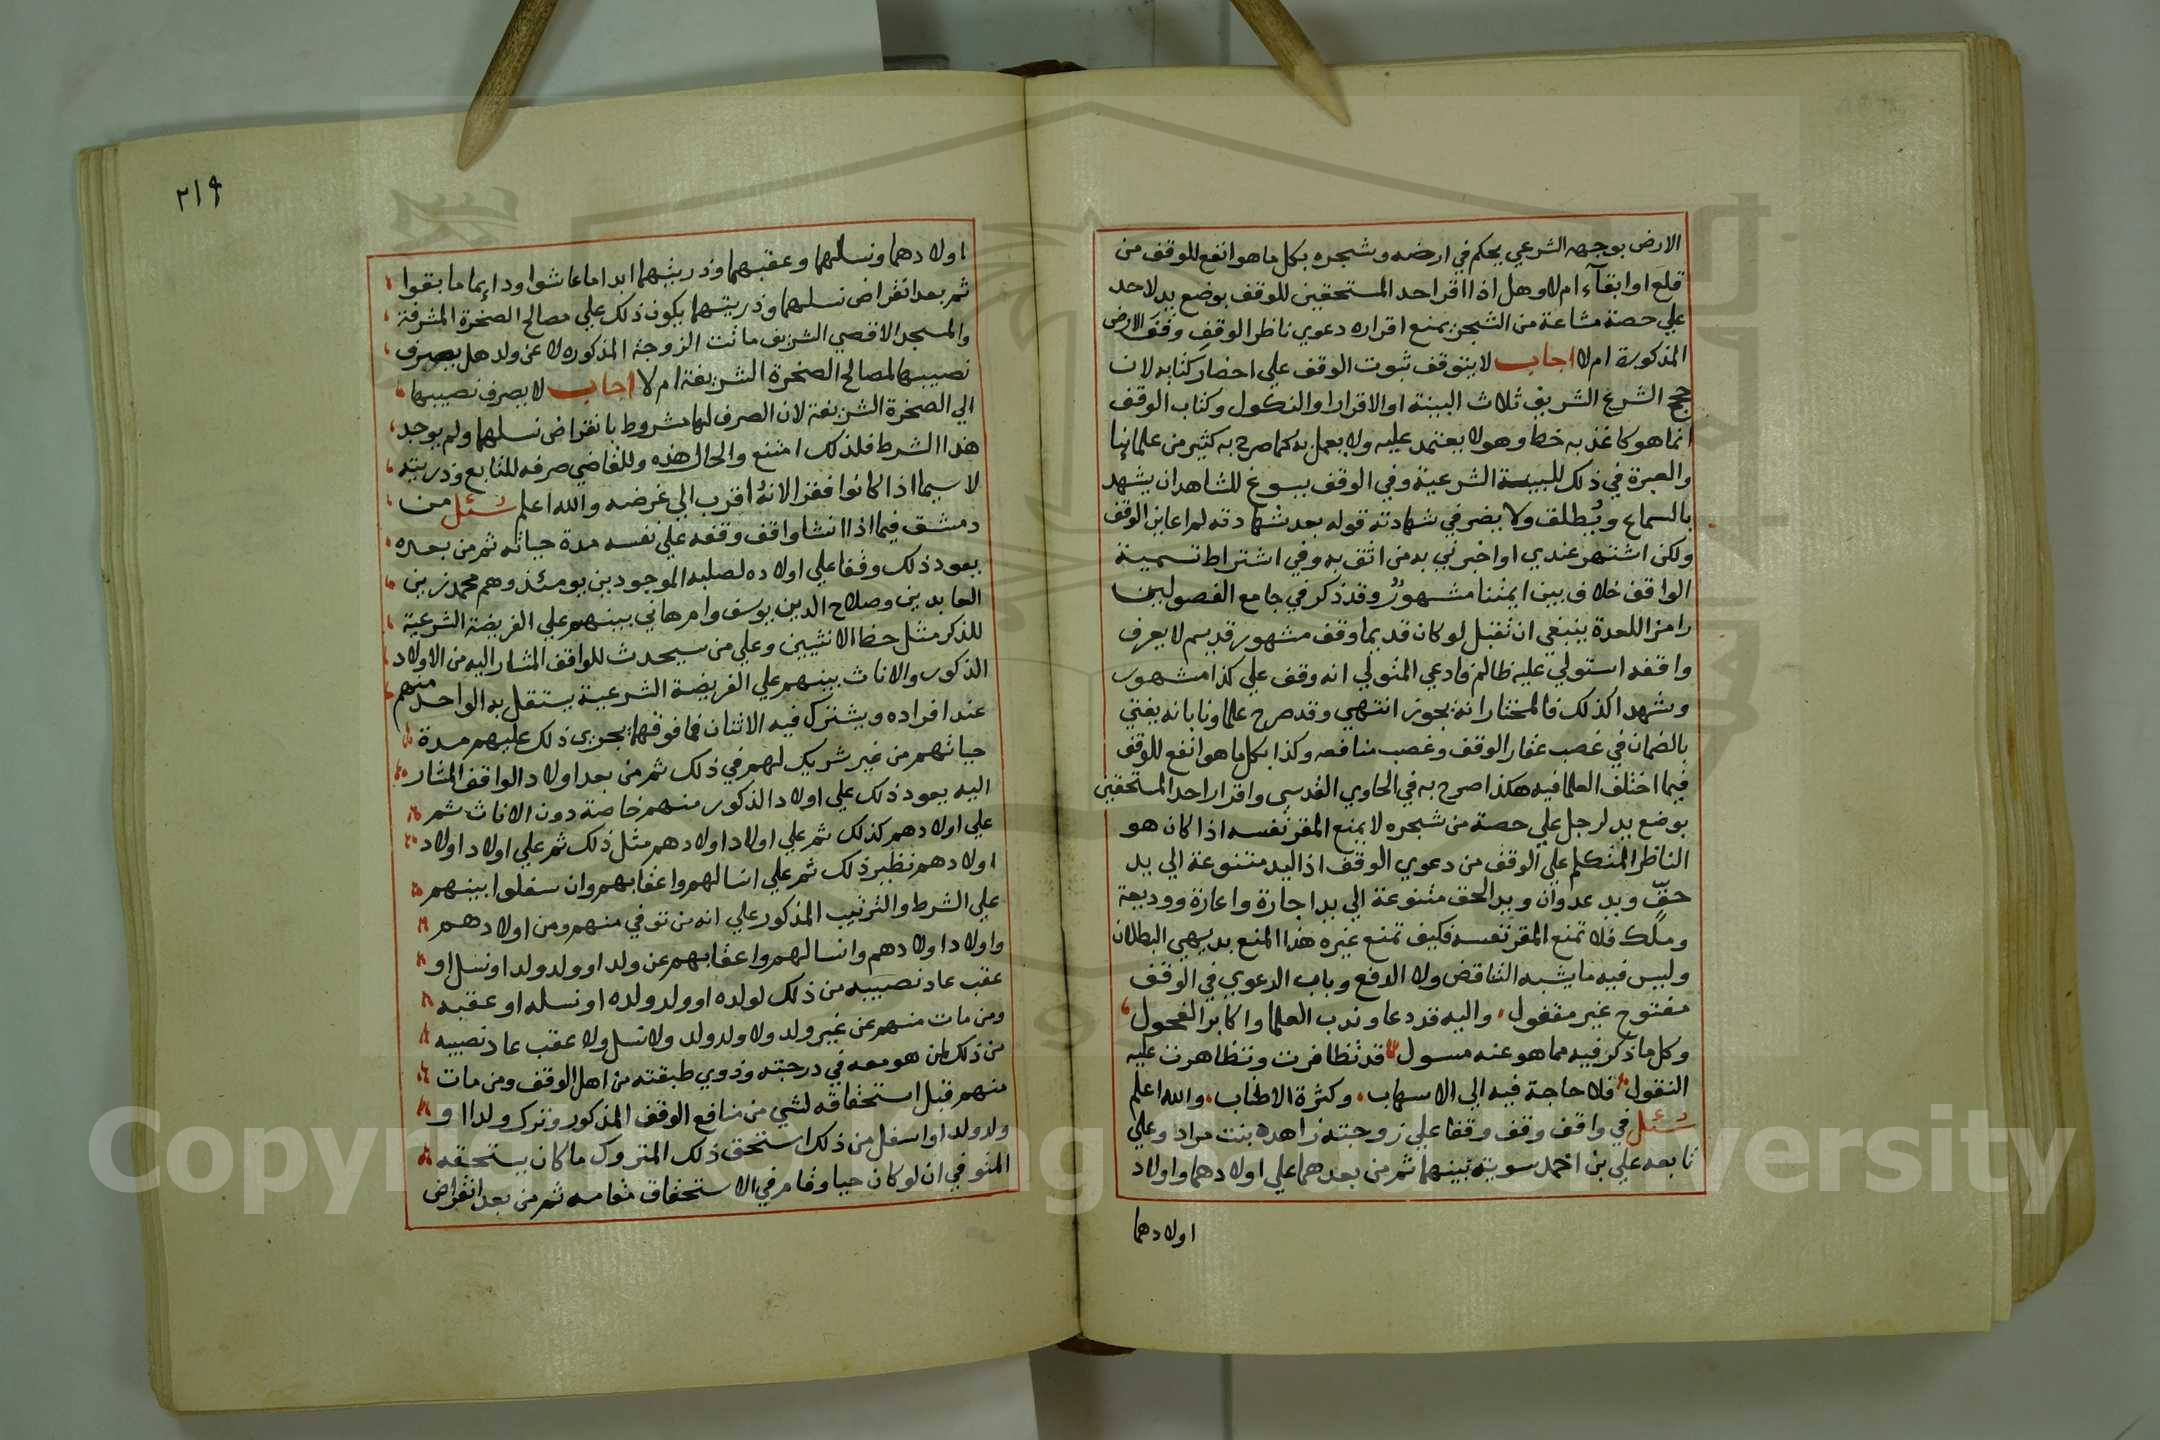 الارض بوجهه الشرعي يحكم في ارضه وشجره بكل ما هو انفع للوقف من
قلع او ابقآء ام لا وهل اذا اقر احد المستحقين للوقف بوضع يد لاحد
علي حصة مشاعة من الشجر يمنع اقراره دعوي ناظر الوقف وقف الارض
المذكورة ام لا اجاب لا يتوقف ثبوت الوقف علي احضار كتابه لان
حجج الشرع الشريف ثلاث البينة او الاقرار او النكول وكتاب الوقف
انما هو كاغذ به خط وهو لا يعتمد عليه ولا يعمل به كما صرح به كثير من علمائنا
والعبرة في ذلك للبينة الشرعية وفي الوقف يسوغ للشاهد ان يشهد
بالسماع ويُطلق ولا يضر في شهادته قوله بعد شهادته لم اعاين الوقف
ولكن اشتهر عندي او اخبرني به من اثق به وفي اشتراط تسمية
الواقف خلاف بين ايمتنا مشهور وقد ذكر في جامع الفصولين
رامزا للعدة ينبغي ان تقبل لو كان قديما وقف مشهور قديم لا يعرف
واقفه استولي عليه ظالم فادعي المتولي انه وقف علي كذا مشهور
وشهدا كذلك فالمختار انه يجوز انتهي وقد صرح علماونا بانه يفتي
بالضمان في غصب عقار الوقف وغصب منافعه وكذا بكل ما هو انفع للوقف
فيما اختلف العلما فيه هكذا صرح به في الحاوي القدسي واقرار احد المستحقين
بوضع يد لرجل علي حصة من شجره لا يمنع المقر نفسه اذا كان هو
الناظر المتكلم علي الوقف من دعوي الوقف اذ اليد متنوعة الي يد
حقّ ويد عدوان ويد الحق متنوعة الي يد اجارة واعارة ووديعة
وملك فلا تمنع المقر نفسه فكيف تمنع غيره هذا المنع بديهي البطلان
وليس فيه ما يشبه التناقض ولا الدفع وباب الدعوي في الوقف
مفتوح غير مقفول، واليه قد دعا وندب العلما واكابر الفحول
وكل ما ذكر فيه مما هو عنه مسول قد تظافرت وتظاهرت عليه
النقول فلا حاجة فيه الي الاسهاب، وكثرة الاطناب، والله اعلم
سئل في واقف وقف وقفا علي زوجته زاهدة بنت مراد وعلي
تابعه علي بن احمد سوية بينهما ثم من بعدهما علي اولادهما واولاد
اولادهما
٢١٩
اولادهما ونسلهما وعقبهما وذريتهما ابدا ما عاشوا ودايما ما بقوا
ثم بعد انقراض نسلهما وذريتهما يكون ذلك علي مصالح الصخرة المشرفة
والمسجد الاقصي الشريف ماتت الزوجة المذكوره لا عن ولد هل يصرف
نصيبها لمصالح الصخرة الشريفة ام لا اجاب لا يصرف نصيبها
الي الصخرة الشريفة لان الصرف لها مشروط بانقراض نسلهما ولم يوجد
هذا الشرط فلذلك امتنع والحال هذه وللقاضي صرفه للتابع وذريته
لا سيما اذا كانوا فقرا لانهُ اقرب الي غرضه والله اعلم سئل من
دمشق فيما اذا انشا واقف وقفه علي نفسه مدة حياته ثم من بعده
يعود ذلك وقفا علي اولاده لصلبه الموجودين يومئذ وهم محمد زين
العابدين وصلاح الدين يوسف وام هاني بينهم علي الفريضة الشرعية
للذكر مثل حظ الانثيين وعلي من سيحدث للواقف المشار اليه من الاولاد
الذكور والاناث بينهم علي الفريضة الشرعية يستقل به الواحد منهم
عند افراده ويشترك فيه الاثنان فما فوقهما يجري ذلك عليهم مدة
حياتهم من غير شريك لهم في ذلك ثم من بعد اولاد الواقف المشار
اليه يعود ذلك علي اولاد الذكور منهم خاصة دون الاناث ثم
علي اولادهم كذلك ثم علي اولاد اولادهم مثل ذلك ثم علي اولاد اولاد
اولادهم نظير ذلك ثم علي انسالهم واعقابهم وان سفلوا بينهم
علي الشرط والترتيب المذكور علي انه من توفي منهم ومن اولادهم
واولاد اولادهم وانسالهم واعقابهم عن ولد او ولد ولد او نسل او
عقب عاد نصيبه من ذلك لولده او ولد ولده او نسله او عقبه
ومن مات منهم عن غير ولد ولا ولد ولد ولا نسل ولا عقب عاد نصيبه
من ذلك لمن هو معه في درجته وذوي طبقته من اهل الوقف ومن مات
منهم قبل استحقاقه لشي من منافع الوقف المذكور وترك ولدا او
ولد ولد او اسفل من ذلك استحق ذلك المتروك ما كان يستحقه
المتوفي ان لو كان حيا وقام في الاستحقاق مقامه ثم من بعد انقراض